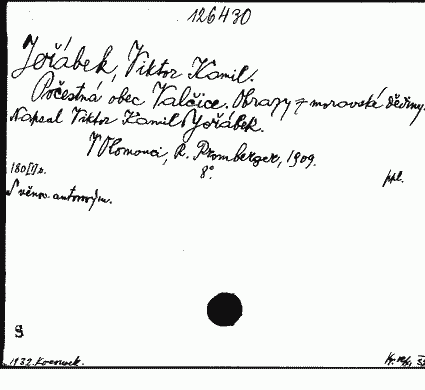 126430
Jeřábek, Viktor Kamil.
Počestná obec Valčice. Obrazy z moravské dědiny.
Napsal Viktor Kamil Jeřábek.
V Olomouci, R. Promberger, 1909.
8°.
180 [I] s.
ppl.
S věnov. autorovým.
S
1932.